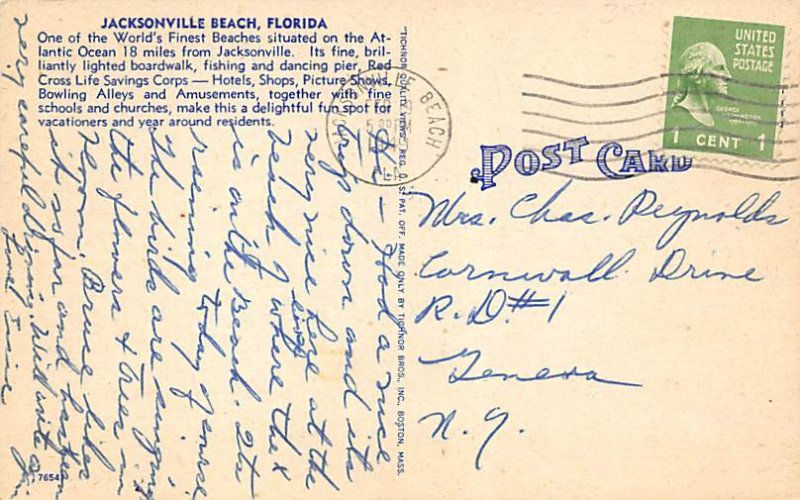 JACKSONVILLE BEACH, FLORIDA
One of the World's Finest Beaches situated on the At-
lantic Ocean 18 miles from Jacksonville. Its fine, bril-
liantly lighted boardwalk, fishing and dancing pier, Red
Cross Life Savings Corps — Hotels, Shops, Picture Shows,
Bowling Alleys and Amusements, together with fine
schools and churches, make this a delightful fun spot for
vacationers and year around residents.
Hi — Had a nice
trip down and its
very nice here at the
beach where the x
is on the Beach. Its
raining today of course
The birds are singing
the flowers & trees in
bloom. Bruce likes
it so far and has been
very careful driving. Will write again
Love Irene
76541
"TICHNOR QUALITY VIEWS," REG. U. S. PAT. OFF. MADE ONLY BY TICHNOR BROS., INC., BOSTON, MASS.
BEACH
UNITED
STATES
POSTAGE
GEORGE
WASHINGTON
1 CENT 1
POST CARD
Mrs. Chas. Reynolds
Cornwall Drive
R.D.#1
Geneva
N.Y.